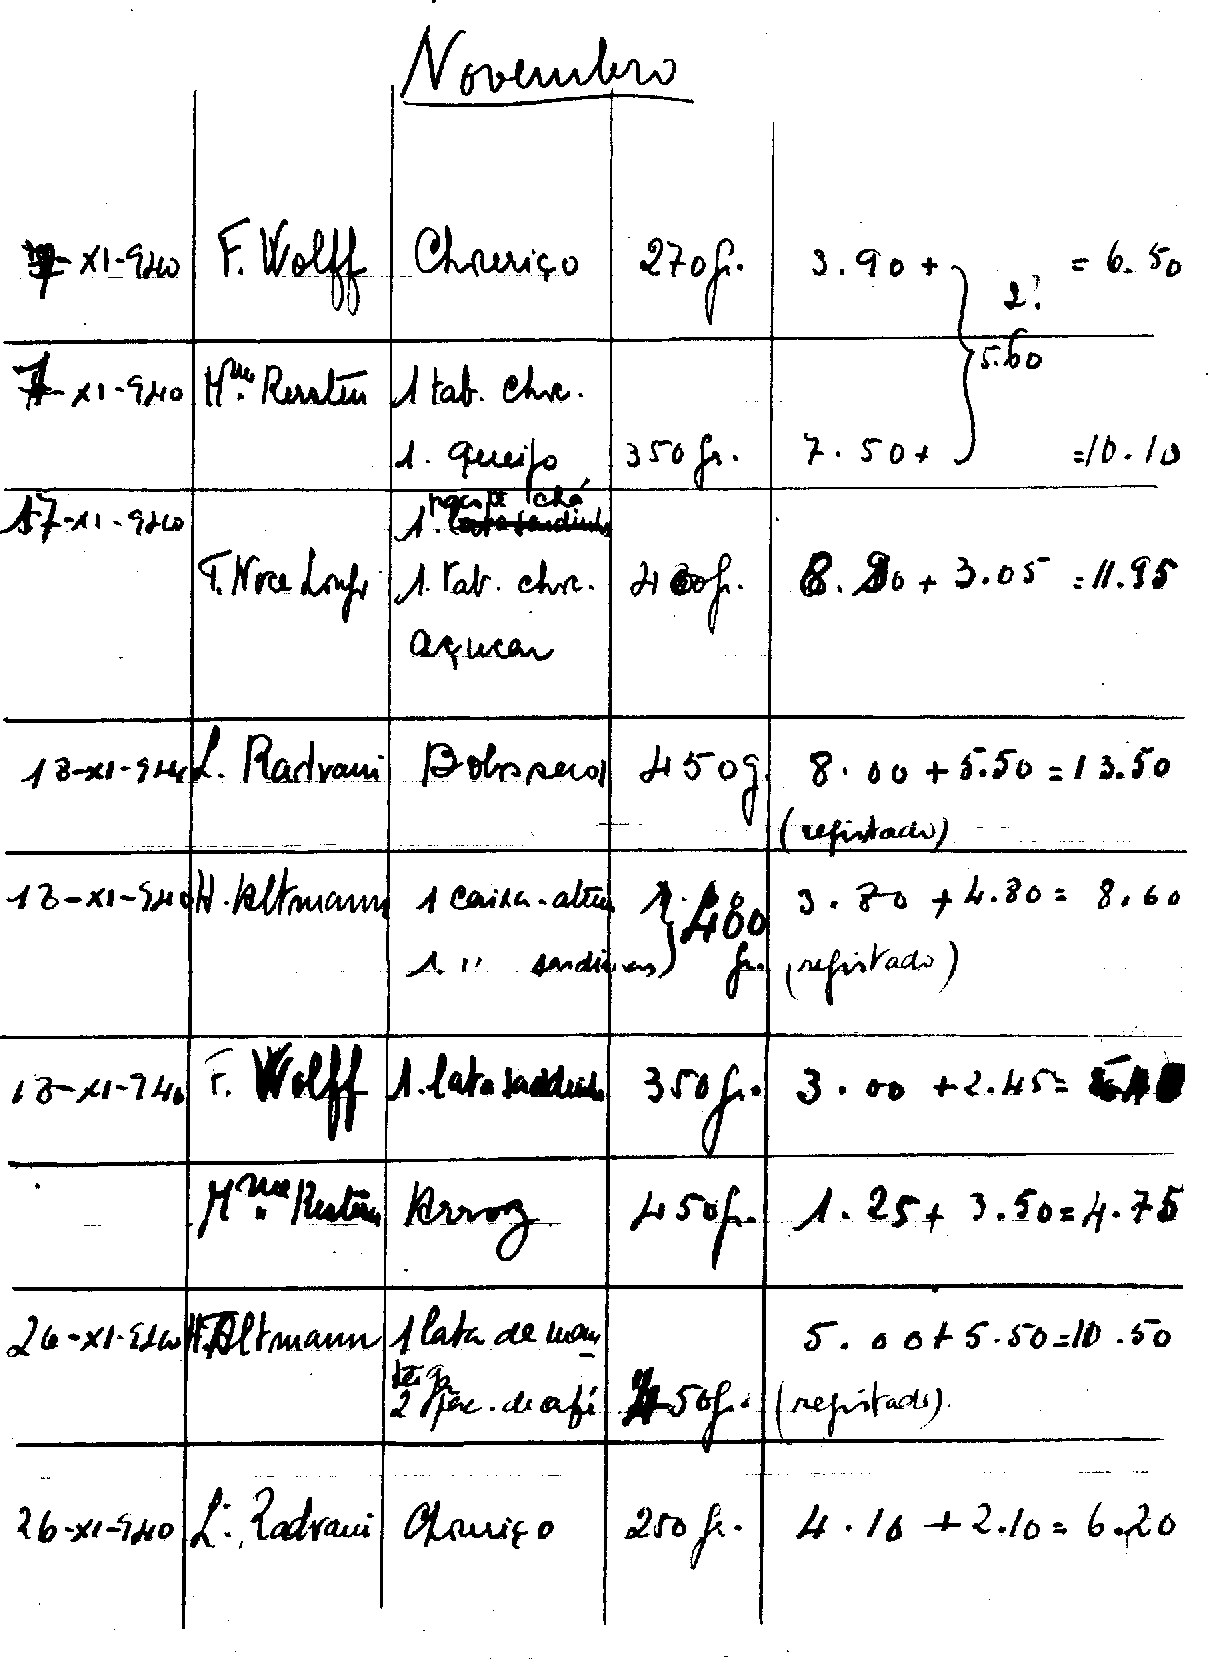 Novembro
7-XI-940 F. Wolff Chouriço 270 gr. 3.90 + = 6.50
2?
5.60
7-XI-940 Mme. Kersten 1 tab. choc.
1. queijo 350 gr. 7.50 + =10.10
17-XI-940 pac. de chá
1.
1. tab. choc. 400 gr. 8.90 + 3.05 = 11.95
açucar
18-XI-940 L. Radvani 450 g. 8.00 + 5.50 = 13.50
(registado)
18-XI-940 H. Altmann 1 caixa atum 400 3.80 + 4.80 = 8.60
1 " sardinhas gr. (registado)
18-XI-940 F. Wolff 1. lata sardinha 350 gr. 3.00 + 2.45 =
Mme. Kersten Arroz 450 gr. 1.25 + 3.50 = 4.75
26-XI-940 H. Altmann 1 lata de man 5.00 + 5.50 = 10.50
teiga
2 pac. de café 450 gr. (registado)
26-XI-940 L. Radvani Chouriço 250 gr. 4.10 + 2.10 = 6.20